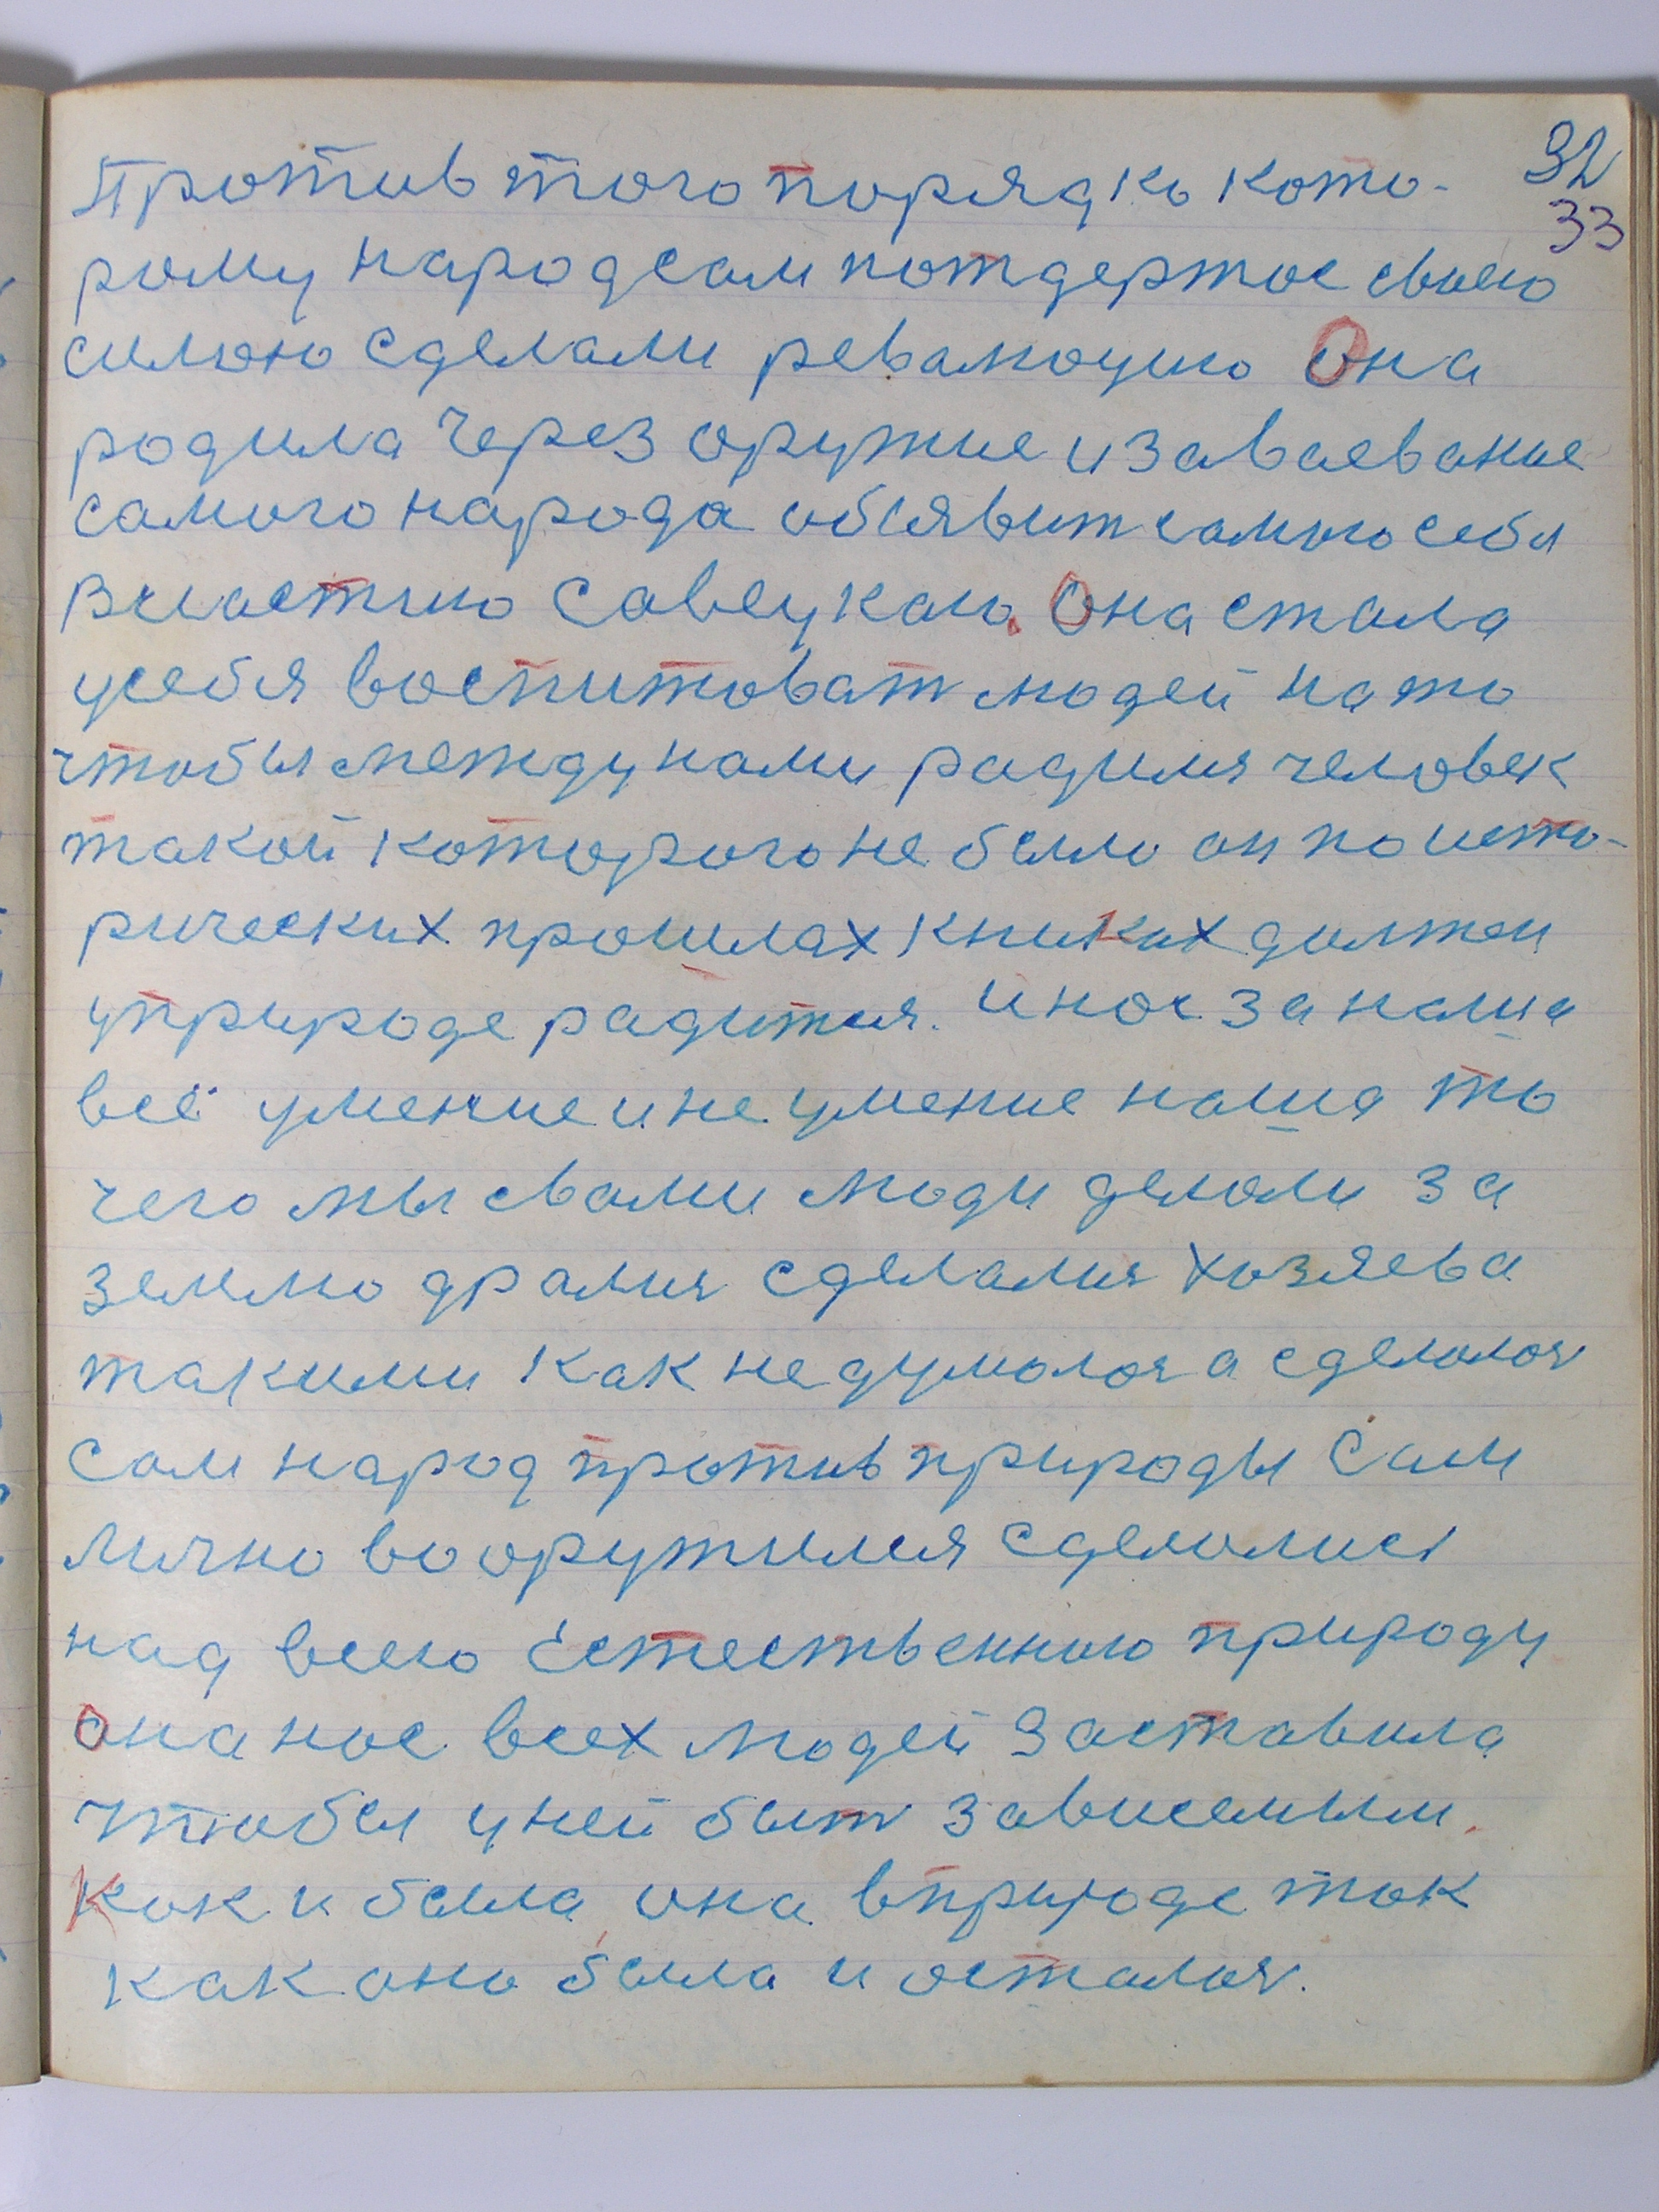 32
33
Против того порядко кото-
рому народ сам потдержое своею
силою сделали революцию Она
родила через оружие и заваевание
самого народа обсявит самого себя
властию савецкаю. Она стала
у себя воспитоват людей на то
чтобы между нами радился человек
такой которого не было он по исто-
рических прошлах книжках должен
у природе радится. И нос за наша
всё умение и не умение наша то
чего мы свами люди делали за
землю дрался сделался хозяева
такими как не думолоя а сделолоя
сам народ против природы Сам
лично вооружился сделолися
над всею Естественною природу
она нос всех людей Заставила
чтобы у ней быт зависемым.
Как и была она в природе ток
как оно была и осталоя.